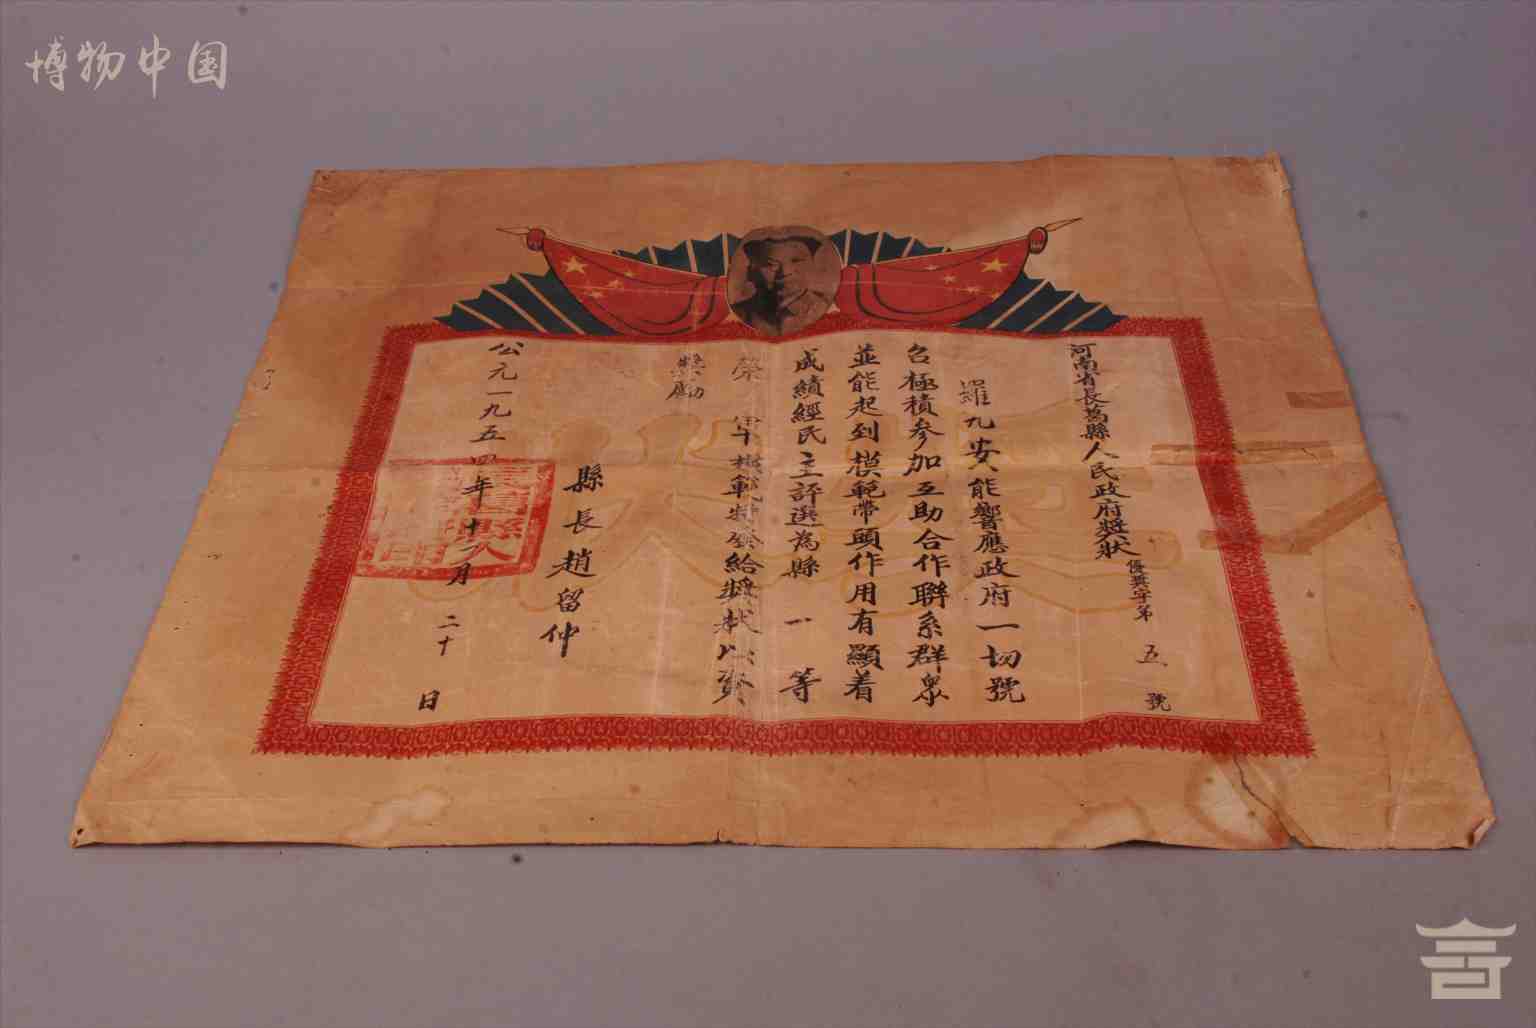 博物中国
河南省長葛縣人民政府獎狀 優獎字第 五 號
羅九安能響應政府一切號
召極積参加互助合作聯系群衆
並能起到模範帶頭作用有顯着
成績經民主評選為縣一等
榮軍模範特發給獎狀以資
縣長趙留仲
公元一九五四年十一月二十日